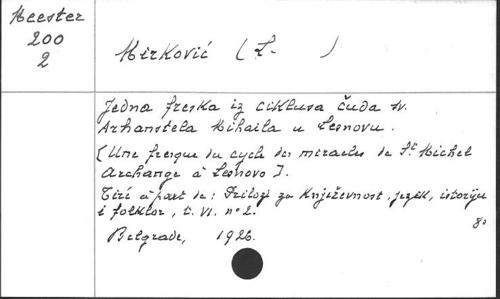 Meester
200
2
Mirković (L. )
Jedna freska iz ciklusa čuda sv.
Arhanđela Mihaila u Lesnovu.
[Une fresque du cycle des miracles de St Michel
Archange à Lesnovo].
Tiré à part de: Prilozi za Književnost, jezik, istoriju
i folklor, t. VI. n° 2.
8°
Belgrade, 1926.